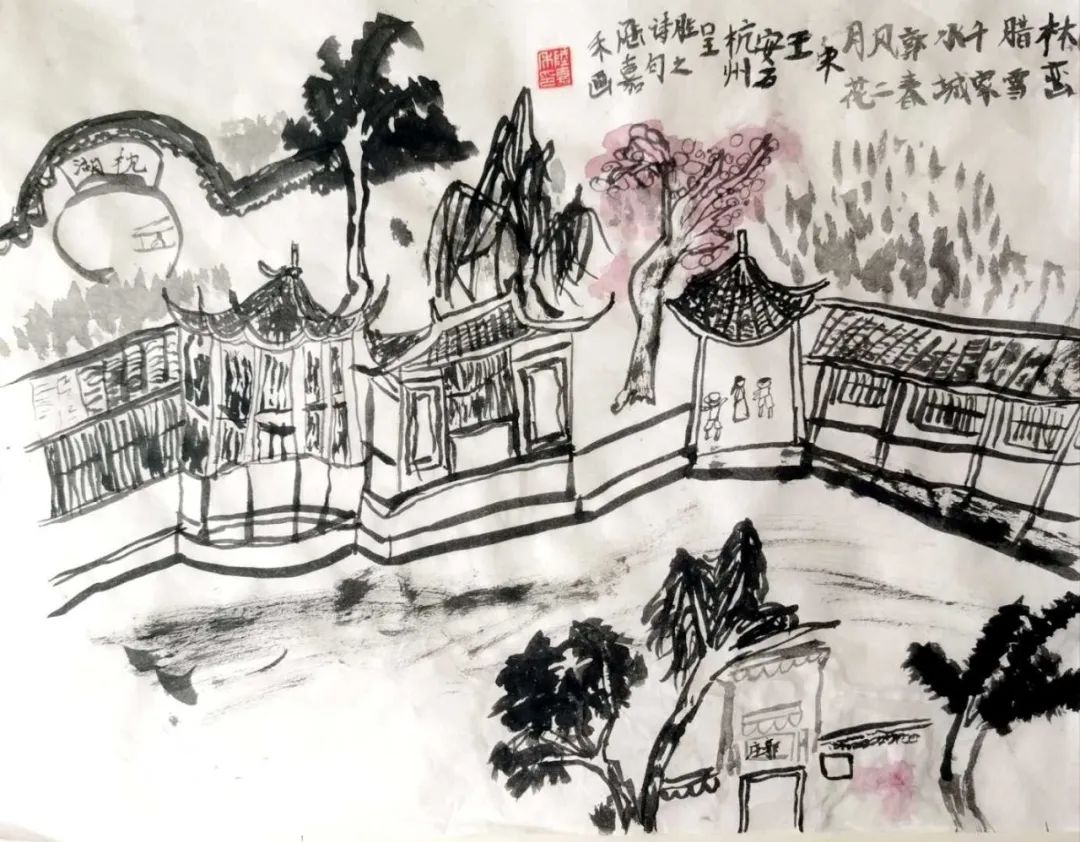 林峦
腊雪
千家
水城
郭春
风二
月花
宋
王
安石
杭州
呈
胜之
诗句
嘉
禾画
枕湖
郭庄